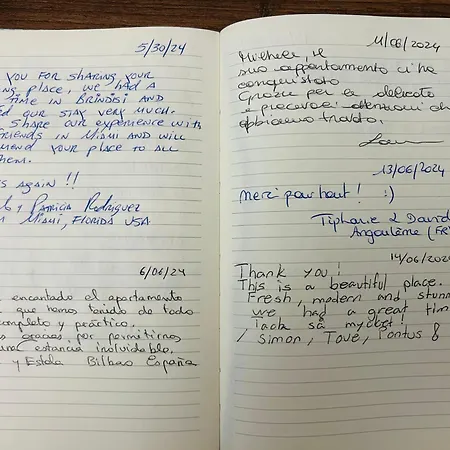 5/30/24
YOU FOR SHARING YOUR
PLACE, WE HAD A
TIME IN BRINDISI AND
OUR STAY VERY MUCH.
SHARE OUR EXPERIENCE WITH
FRIENDS IN MIAMI AND WILL
YOUR PLACE TO ALL
AGAIN !!
PATRICIA RODRIGUEZ
MIAMI, FLORIDA USA
6/06/24
encantado el apartamento
que hemos tenido de todo
completo y práctico.
gracias por permitirnos
una estancia inolvidable.
y Estola Bilbao España
11/06/2024
suo appartamento ci ha
conquistato
Grazie per le delicate
e piacevoli attenzioni che
abbiamo trovato.
13/06/2024
merci pour tout ! :)
Tiphanie & David
Angoulême (FR
14/06/2024
Thank you!
This is a beautiful place.
Fresh, modern and stunn
we had a great time
Tack så mycket!
/ Simon, Tove, Pontus &